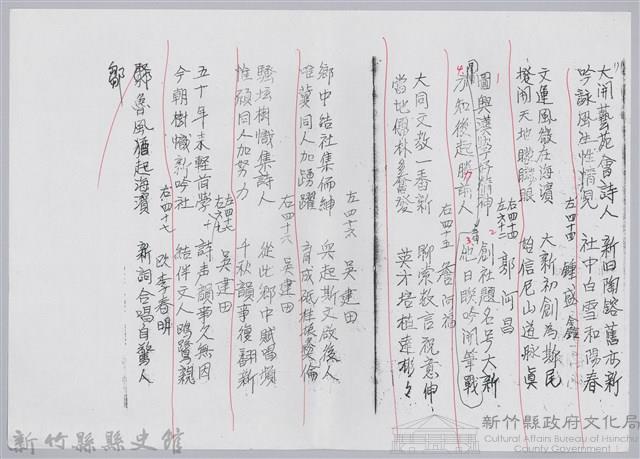 大開藝苑會詩人 新旧陶鎔萬亦新
吟詠風生性情見 社中白雪和陽春
左四十四 鍾盛鑫
文運風徵在海濱 大新初創為斯民
撥開天地矇矓眼 始信尼山道脉真
右四十四
左六十一 郭阿昌
圖興漢學好精神 創社題名号大新
預知後起勝前人 他日联吟開筆戰
左四十五 詹阿福
大同文教一番新 聊崇教言祝意伸
當地儒林多奮發 英才培植達彬々
左四十六 吳建田
鄉中結社集儒紳 興起斯文啟後人
惟冀同人加踴躍 育成砥柱獎倫
右四十六 吳建田
騷坛樹幟集詩人 從此鄉中賦
惟碩同人加努力 千秋韻事復翻新
左四十七
左六九 吳建田
五十年來輕首學 詩声韻事久無因
今朝樹幟新吟社 結伴文人鷗鷺親
右四十七 欧李春明
鄒魯風猶起海濱 新詞合唱自驚人
鄒
新竹縣縣史館
新竹縣政府文化局
Cultural Affairs Bureau of Hsinchu
County Government